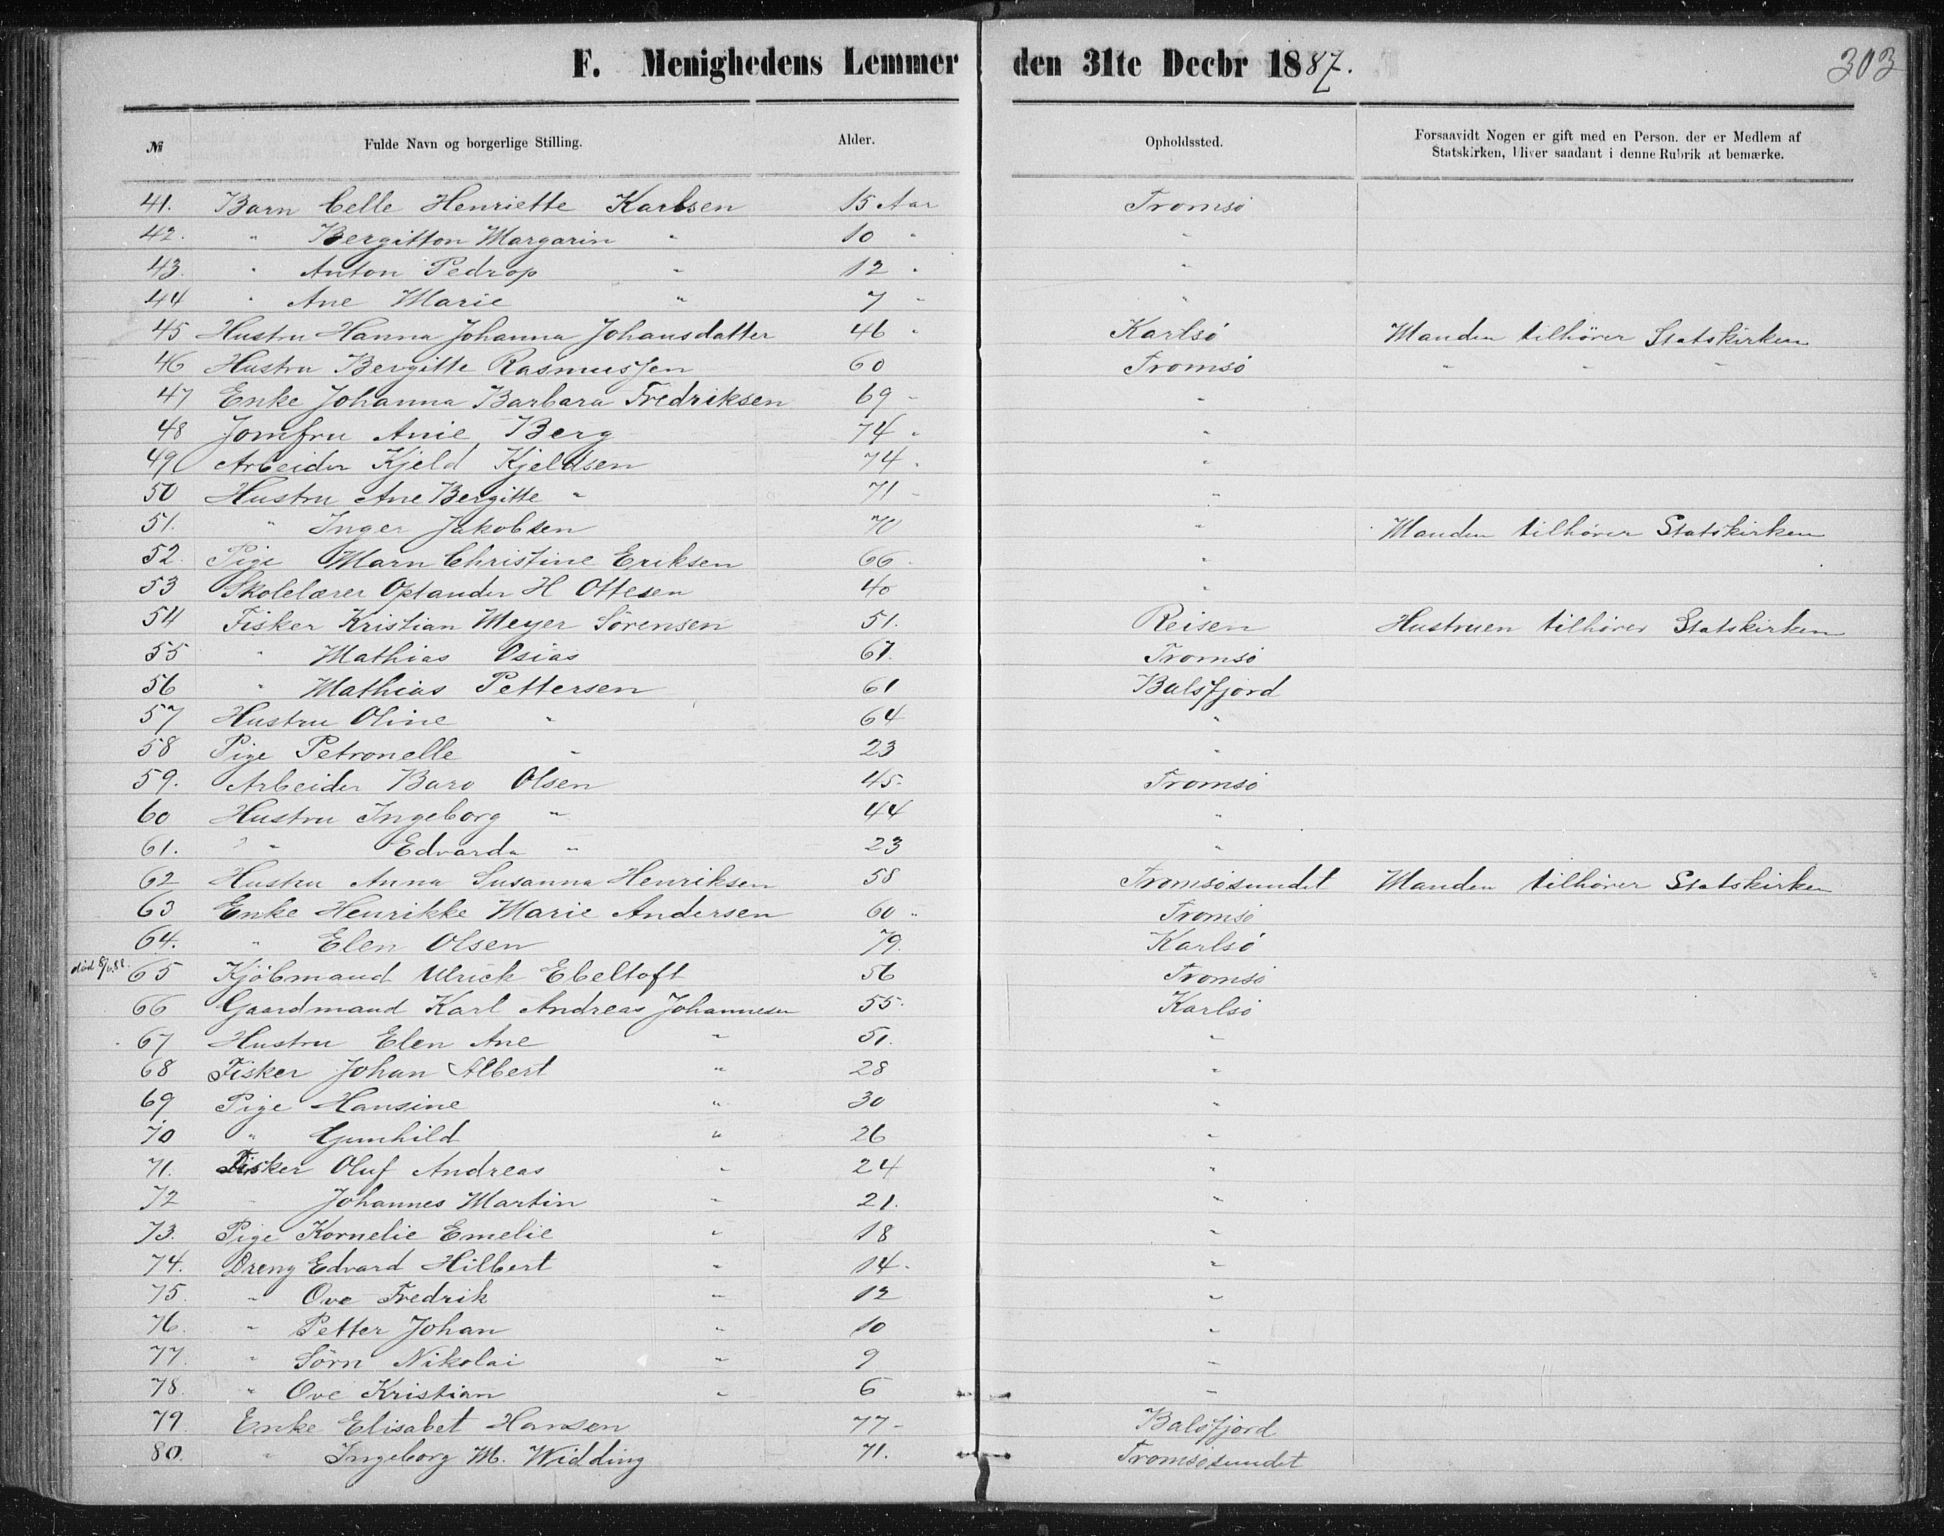 F. Menighedens Lemmer den 31te Decbr 1887. 303
№ Fulde Navn og borgerlige Stilling. Alder. Opholdssted. Forsaavidt Nogen er gift med en Person, der er Medlem af Statskirken, bliver saadant i denne Rubrik at bemærke.
41. Barn Celle Henriette Karlsen 15 Aar Tromsö
42. " Bergitton Margarin " 10 " "
43. " Anton Pedrop " 12 " "
44 " Ane Marie " 7 " "
45 Hustru Hanna Johanna Johansdatter 46 " Karlsö Manden tilhører Statskirken
46 Hustru Bergitte Rasmussen 60 Tromsö " " "
47 Enke Johanna Barbara Fredriksen 69 " "
48 Jomfru Anie Berg 74 " "
49 Arbeider Kjeld Kjeldsen 74. "
50 Hustru Ane Bergitte " 71 " "
51. " Inger Jakobsen 70 " Manden tilhører Statskirken
52. Pige Marn Christine Eriksen 66 " "
53 Skolelærer Optander H Ottesen 40 "
54 Fisker Kristian Meyer Sörensen 51. Reisen Hustruen tilhører Statskirken
55 " Mathias Osias 67. Tromsö
56 " Mathias Pettersen 61 Balsfjord
57 Hustru Oline " 64 "
58 Pige Petronelle " 23 "
59. Arbeider Baro Olsen 45. Tromsö
60 Hustru Ingeborg " 44 "
61. " Edvarda " 23 "
62 Hustru Anna Susanna Henriksen 58 Tromsösundet Manden tilhører Statskirken
63 Enke Henrikke Marie Andersen 60 " Tromsö
64. " Elen Olsen 79. Karlsö
död 65 Kjöbmand Ulrick Ebeltoft 56 Tromsö
66 Gaardmand Karl Andreas Johannesen 55. Karlsö
67 Hustru Elen Ane " 51. "
68 Fisker Johan Albert " 28 "
69 Pige Hansine " 30 "
70 " Gunhild " 26 "
71. Fisker Oluf Andreas " 24 "
72 " Johannes Martin " 21. "
73. Pige Kornelie Emelie " 18 "
74. Dreng Edvard Hilbert " 14. "
75. " Ove Fredrik " 12 "
76. " Petter Johan " 10 "
77. " Sörn Nikolai " 9 "
78. " Ove Kristian " 6 "
79 Enke Elisabet Hansen 77 - Balsfjord
80. " Ingeborg M. Widding 71. Tromsösundet